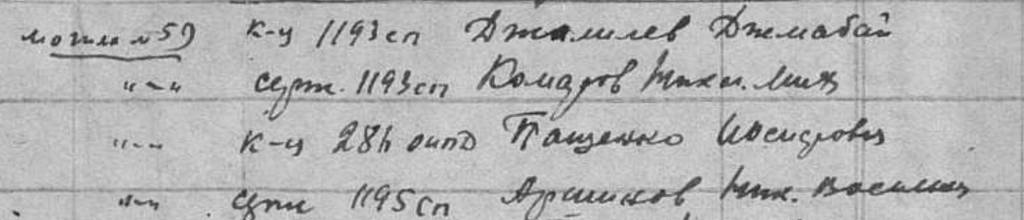 могила №59 к-ц 1193 сп Джамилев Джмабай
"—" серж. 1193 сп Комаров Никол. Мих
"—" к-ц 284 оиптд Пащенко
"—" серж 1195 сп Аршинов Ник. Василии